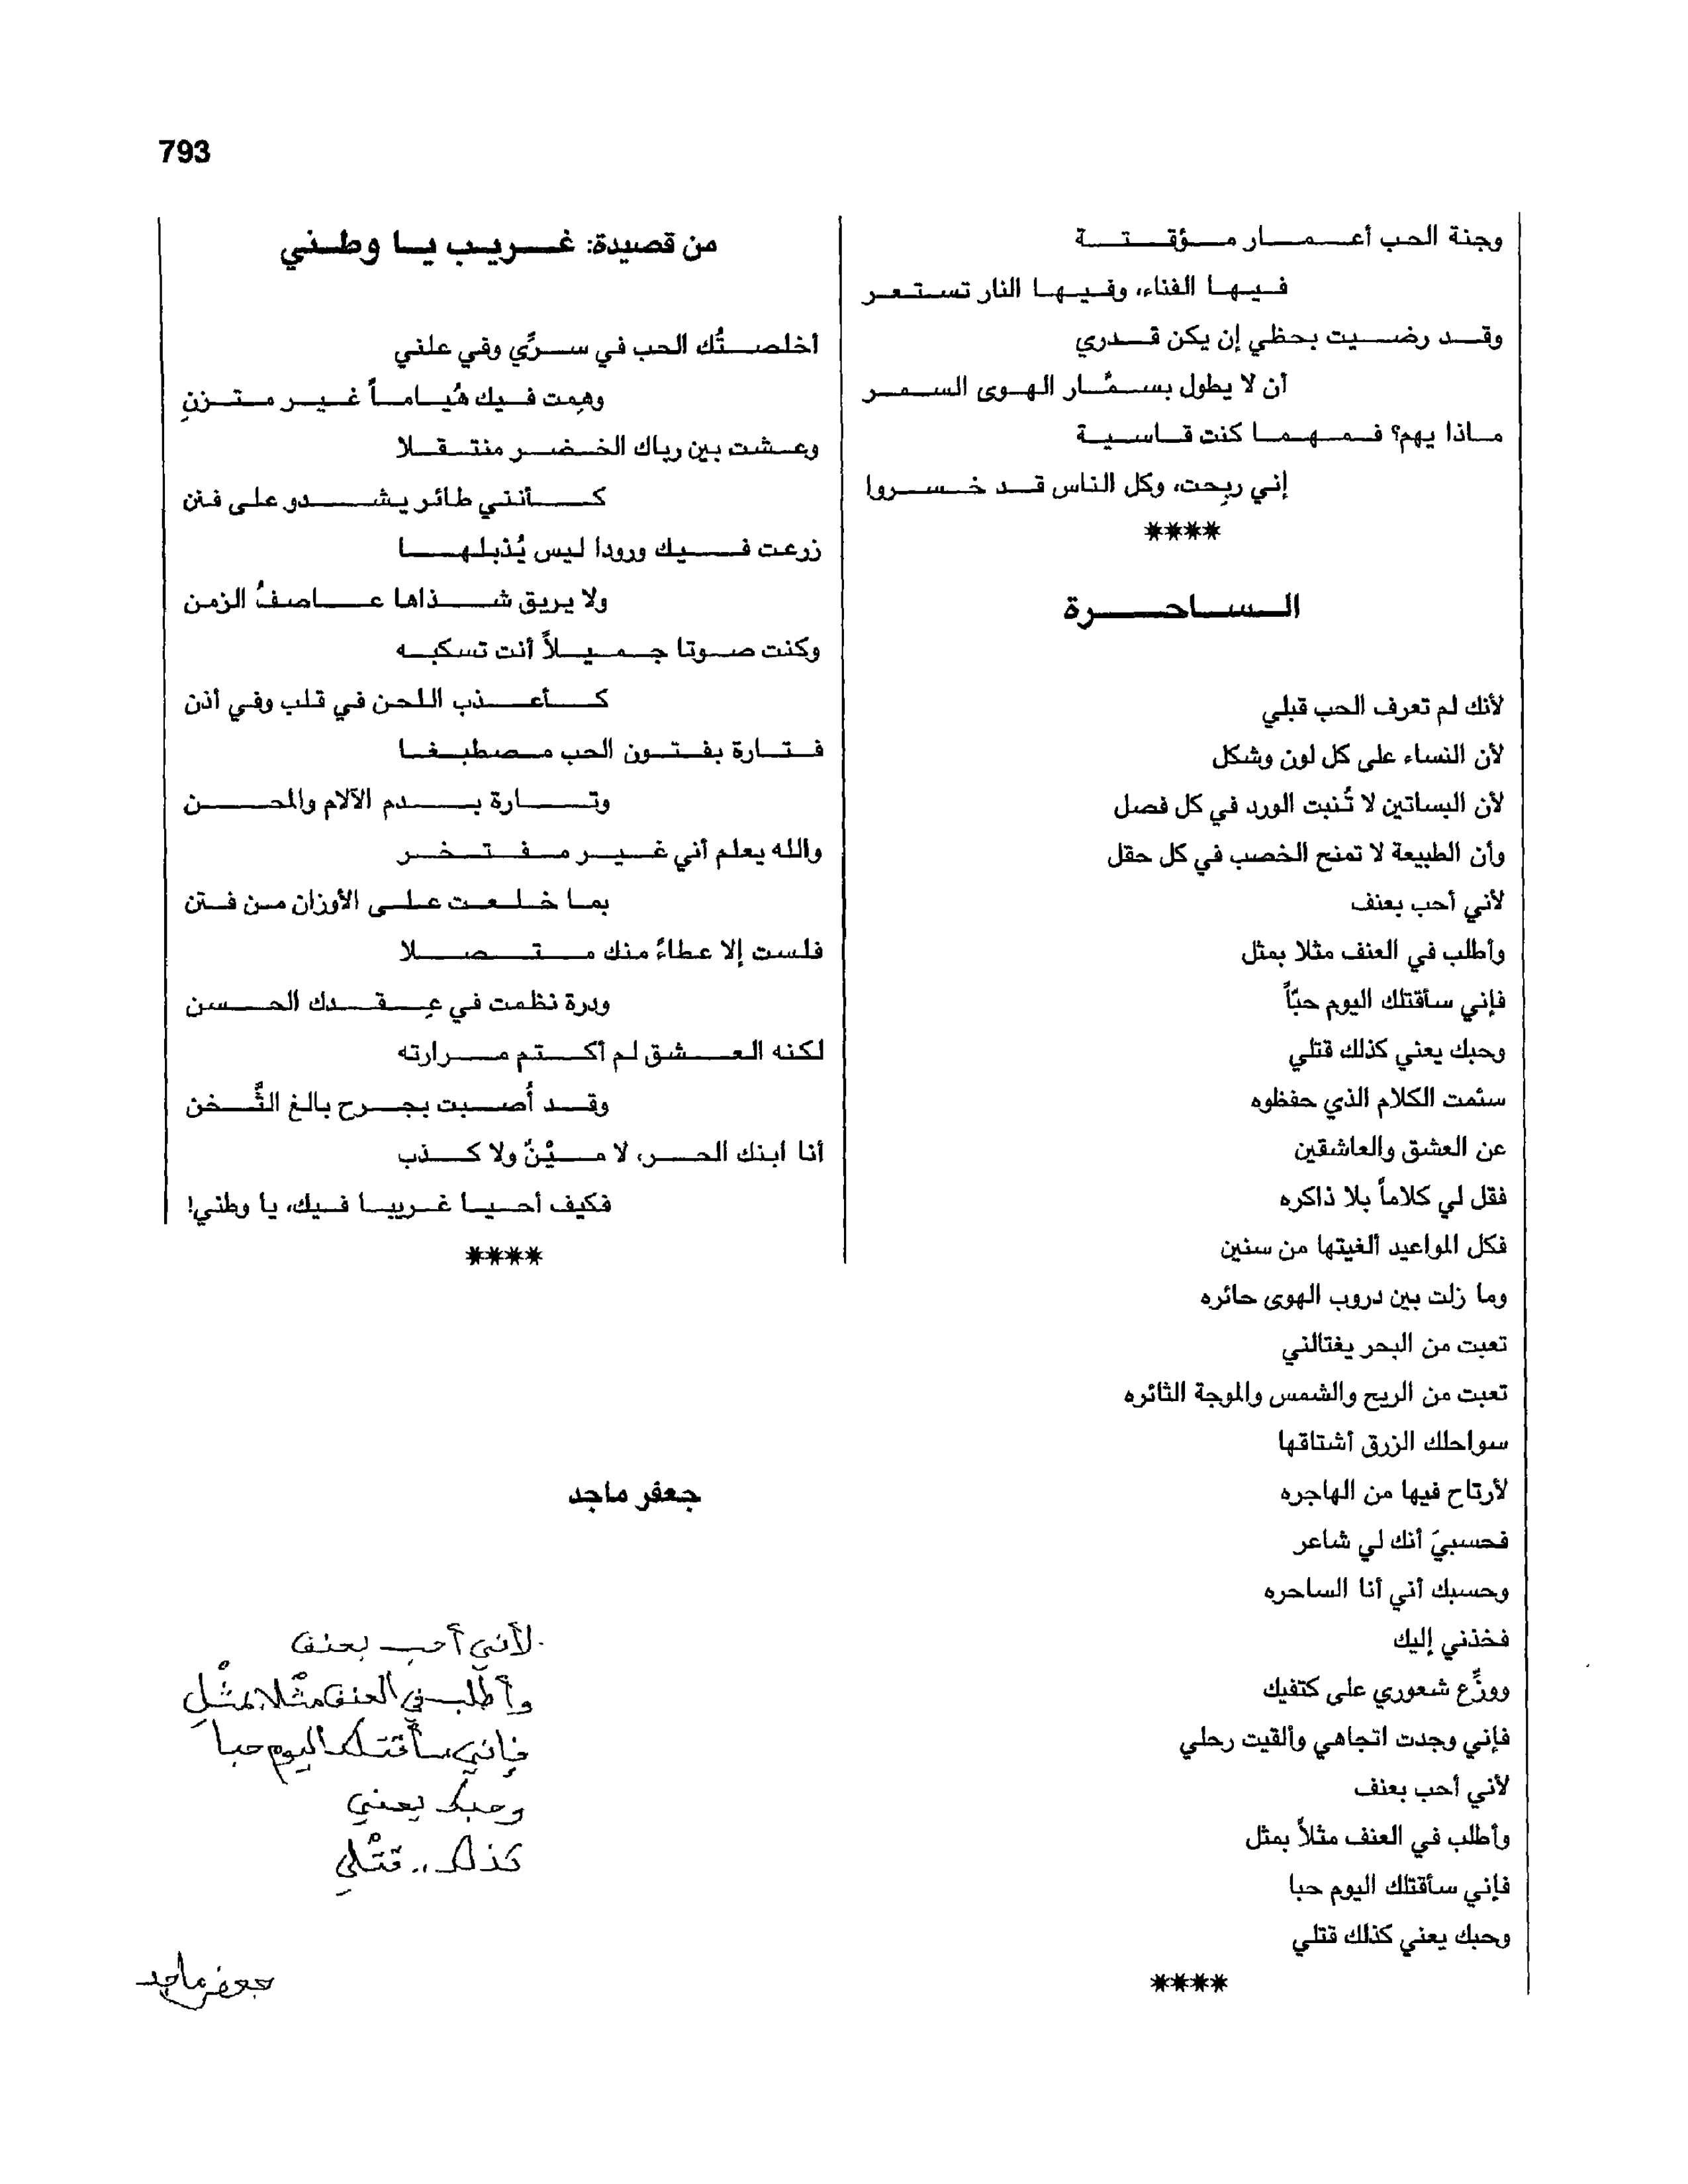 793
وجنة الحب أعمار مؤقتة
فيها الفناء، وفيها النار تستعر
وقد رضيت بحظي إن يكن قدري
أن لا يطول بسمَّار الهوى السمر
ماذا يهم؟ فمهما كنت قاسية
إني ربِحت، وكل الناس قد خسروا
****
الساحرة
لأنك لم تعرف الحب قبلي
لأن النساء على كل لون وشكل
لأن البساتين لا تُنبت الورد في كل فصل
وأن الطبيعة لا تمنح الخصب في كل حقل
لأني أحب بعنف
وأطلب في العنف مثلا بمثل
فإني سأقتلك اليوم حبّاً
وحبك يعني كذلك قتلي
سئمت الكلام الذي حفظوه
عن العشق والعاشقين
فقل لي كلاماً بلا ذاكره
فكل المواعيد ألغيتها من سنين
وما زلت بين دروب الهوى حائره
تعبت من البحر يغتالني
تعبت من الريح والشمس والموجة الثائره
سواحلك الزرق أشتاقها
لأرتاح فيها من الهاجره
فحسبيَ أنك لي شاعر
وحسبك أني أنا الساحره
فخذني إليك
ووزِّع شعوري على كتفيك
فإني وجدت اتجاهي وألقيت رحلي
لأني أحب بعنف
وأطلب في العنف مثلاً بمثل
فإني سأقتلك اليوم حبا
وحبك يعني كذلك قتلي
****
من قصيدة: غريب يا وطني
أخلصتُك الحب في سرِّي وفي علني
وهِمت فيك هُياماً غير متزنِ
وعشت بين رباك الخضر منتقلا
كأنني طائر يشدو على فنن
زرعت فيك ورودا ليس يُذبلها
ولا يريق شذاها عاصفُ الزمن
وكنت صوتا جميلاً أنت تسكبه
كأعذب اللحن في قلب وفي أذن
فتارة بفتون الحب مصطبغا
وتارة بدم الآلام والمحن
والله يعلم أني غير مفتخر
بما خلعت على الأوزان من فتن
فلست إلا عطاءً منك متصلا
ودرة نظمت في عِقدك الحسن
لكنه العشق لم أكتم مرارته
وقد أُصبت بجرح بالغ الثَّخن
أنا ابنك الحر، لا ميْنٌ ولا كذب
فكيف أحيا غريبا فيك، يا وطني!
****
جعفر ماجد
لأني أحب بعنف
وأطلب في العنف مثْلا بمثْلِ
فإني سأقتلك اليوم حبا
وحبك يعني
كذلك.. قتْلي
جعفر ماجد